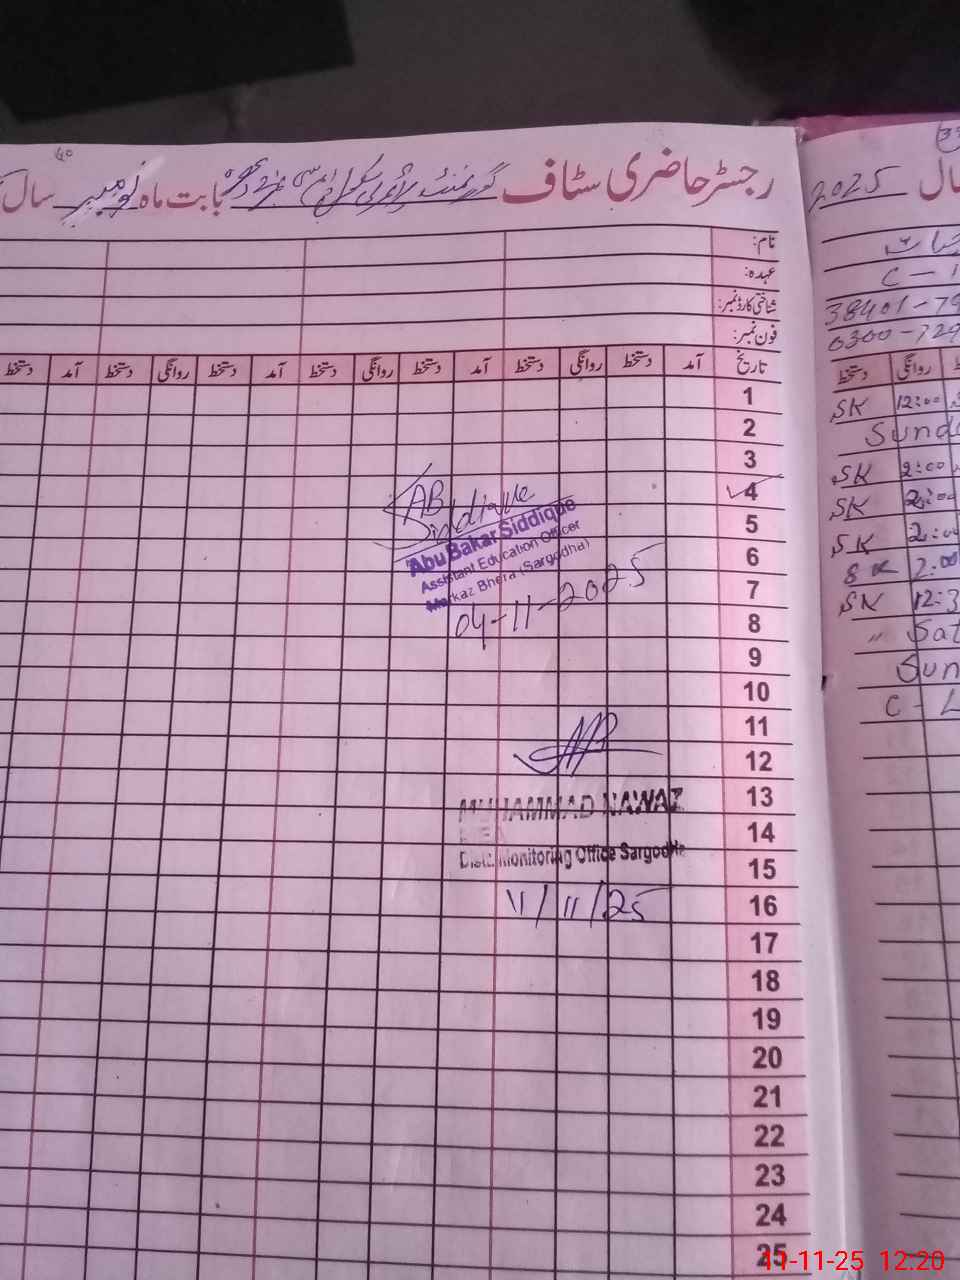 رجسٹر حاضری سٹاف گورنمنٹ پرائمری سکول بابت ماہ نومبر سال
نام:
عہدہ:
شناختی کارڈ نمبر:
فون نمبر:
تاریخ آمد دستخط روانگی دستخط آمد دستخط روانگی دستخط آمد دستخط روانگی دستخط آمد دستخط
1
2
3
4
5
6
7
8
9
10
11
12
13
14
15
16
17
18
19
20
21
22
23
24
25
AB Siddique
Abu Bakar Siddique
Assistant Education Officer
Markaz Bhera (Sargodha)
04-11-2025
MUHAMMAD NAWAZ
Distt: Monitoring Office Sargodha
11/11/25
سال 2025
C - 1
38401-79
0300-729
روانگی دستخط
SK 12:00
Sund
SK 2:00
SK 2:00
SK 2:00
SK 2:00
SK 12:3
" Sat
Sun
C - L
11-11-25 12:20